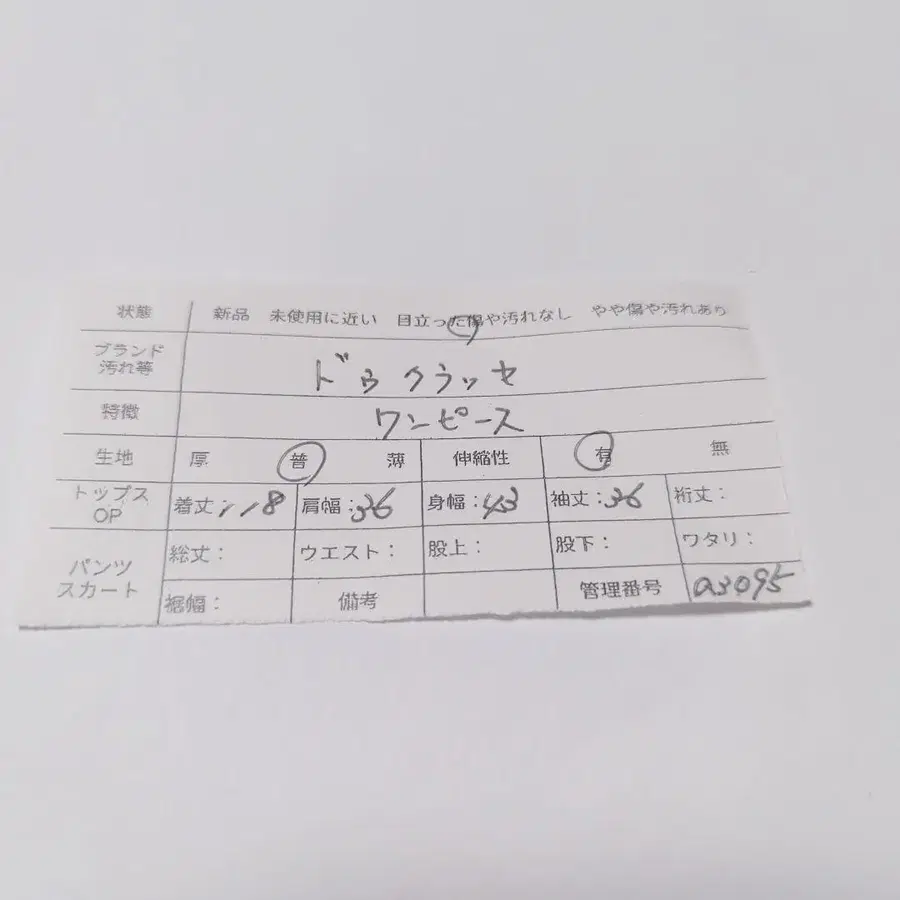 状態 新品 未使用に近い 目立った傷や汚れなし やや傷や汚れあり
ブランド
汚れ等 ドゥクラッセ
特徴 ワンピース
生地 厚 普 薄 伸縮性 有 無
トップス
OP 着丈:118 肩幅:36 身幅:43 袖丈:36 裄丈:
パンツ
スカート 総丈: ウエスト: 股上: 股下: ワタリ:
裾幅: 備考 管理番号 a3095